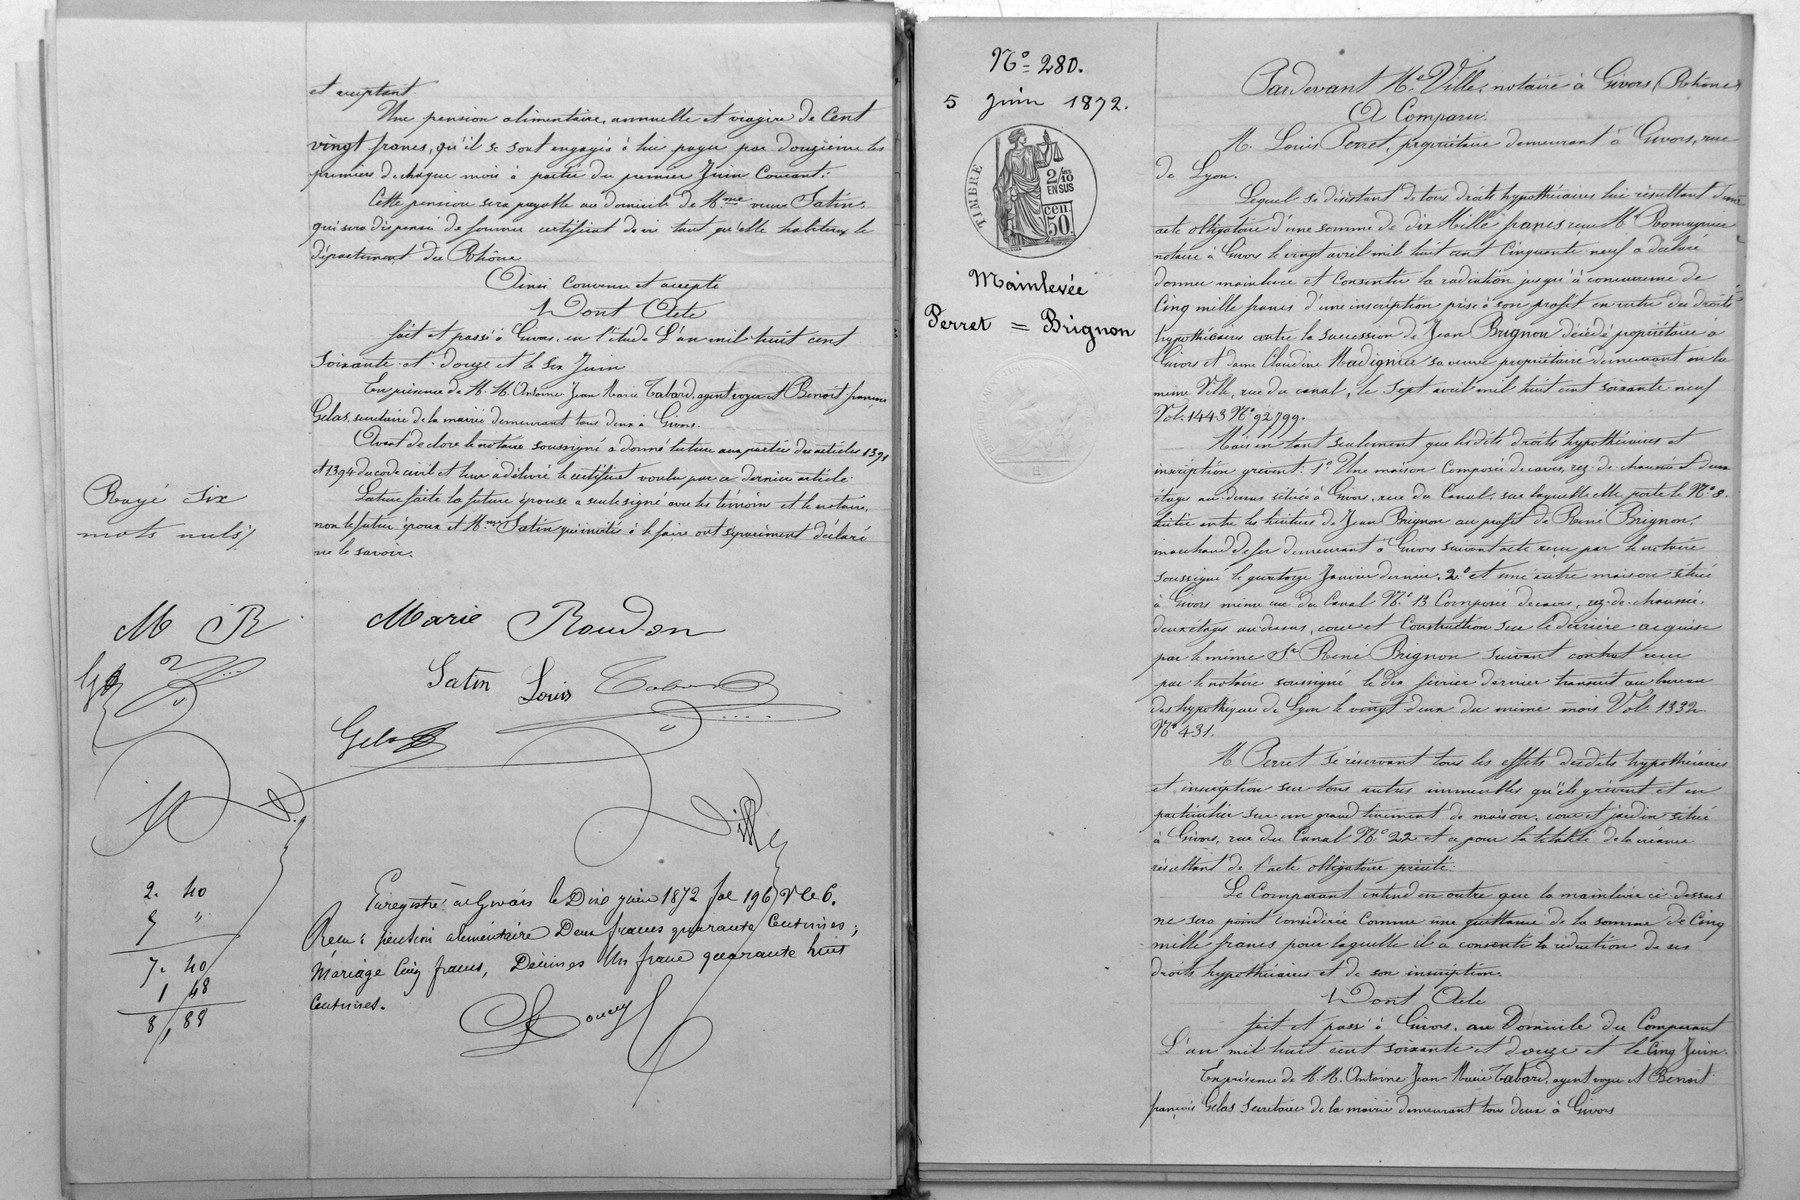 et acceptant.
Une pension alimentaire, annuelle et viagère de Cent
vingt francs, qu'il se sont engagés à lui payer par douzième les
premiers de chaque mois à partir du premier Juin Courant.
Cette pension sera payable au domicile de Mme veuve Satin,
qui sera dispensée de fournir certificat de vie tant qu'elle habitera le
département du Rhône
Ainsi convenu et accepté
Dont Acte
fait et passé à Givors, en l'étude L'an mil huit cent
soixante et douze et le six Juin
En présence de M. M. Antoine Jean Marie Tabard, agent voyer et Benoît françois
Gelas, secrétaire de la mairie demeurant tous deux à Givors.
Avant de clore le notaire soussigné a donné lecture aux parties des articles 1391
et 1394 du code civil et leur a délivré le certificat voulu par ce dernier article
Lecture faite la future épouse a seule signé avec les témoins et le notaire,
non le futur époux et Mme Satin qui invités à le faire ont séparément déclaré
ne le savoir.
Rayé six
mots nuls
M R
Marie Roudon
Satin Louis Tabard
Gelas
Ville
2. 40
5 "
7. 40
1 48
8, 88
Enregistré à Givors le Dix juin 1872 fol 196 V C 6.
Reçu : pension alimentaire Deux francs quarante Centimes ;
Mariage Cinq francs, Décimes Un franc quarante huit
Centimes.
No 280.
5 Juin 1872.
TIMBRE
2/10
EN SUS
50 cen.
Mainlevée
Perret = Brignon
Pardevant Me Ville, notaire à Givors (Rhône)
A Comparu.
M. Louis Perret, propriétaire demeurant à Givors, rue
de Lyon.
Lequel se désistant de tous droits hypothécaires lui résultant d'un
acte obligatoire d'une somme de dix Mille francs reçu Me Romagnieu
notaire à Givors le vingt avril mil huit cent Cinquante neuf a déclaré
donner mainlevée et Consentir la radiation jusqu'à concurrence de
Cinq mille francs d'une inscription prise à son profit en vertu des droits
hypothécaires contre la succession de Jean Brignon décédé propriétaire à
Givors et dame Claudine Madignier sa veuve propriétaire demeurant en la
même Ville, rue du canal, le sept avril mil huit cent soixante neuf
Vol. 1443 No 92799.
Mais en tant seulement que lesdits droits hypothécaires et
inscription grèvent : 1o Une maison Composée de caves, rez-de-chaussée et deux
étages au-dessus située à Givors, rue du Canal, sur laquelle elle porte le No 8.
licitée entre les héritiers de Jean Brignon au profit de René Brignon,
marchand de fer demeurant à Givors suivant acte reçu par le notaire
soussigné le quatorze Janvier dernier. 2o et une autre maison située
à Givors même rue du Canal No 13 Composée de caves, rez-de-chaussée,
deux étages au-dessus, cour et Construction sur le derrière acquise
par le même Sr René Brignon suivant contrat reçu
par le notaire soussigné le dix février dernier transcrit au bureau
des hypothèques de Lyon le vingt deux du même mois Vol. 1332
No 431.
M Perret se réservant tous les effets desdits hypothécaires
et inscription sur tous autres immeubles qu'ils grèvent et en
particulier sur un grand tènement de maison, cour et jardin situé
à Givors, rue du Canal No 22 et ce pour la totalité de la créance
résultant de l'acte obligatoire précité.
Le Comparant entend en outre que la mainlevée ci-dessus
ne sera point considérée Comme une quittance de la somme de Cinq
mille francs pour laquelle il a consenti la réduction de ses
droits hypothécaires et de son inscription.
Dont Acte
fait et passé à Givors, au Domicile du Comparant
L'an mil huit cent soixante et douze et le Cinq Juin.
En présence de M. M. Antoine Jean Marie Tabard, agent voyer et Benoît
françois Gelas secrétaire de la mairie demeurant tous deux à Givors